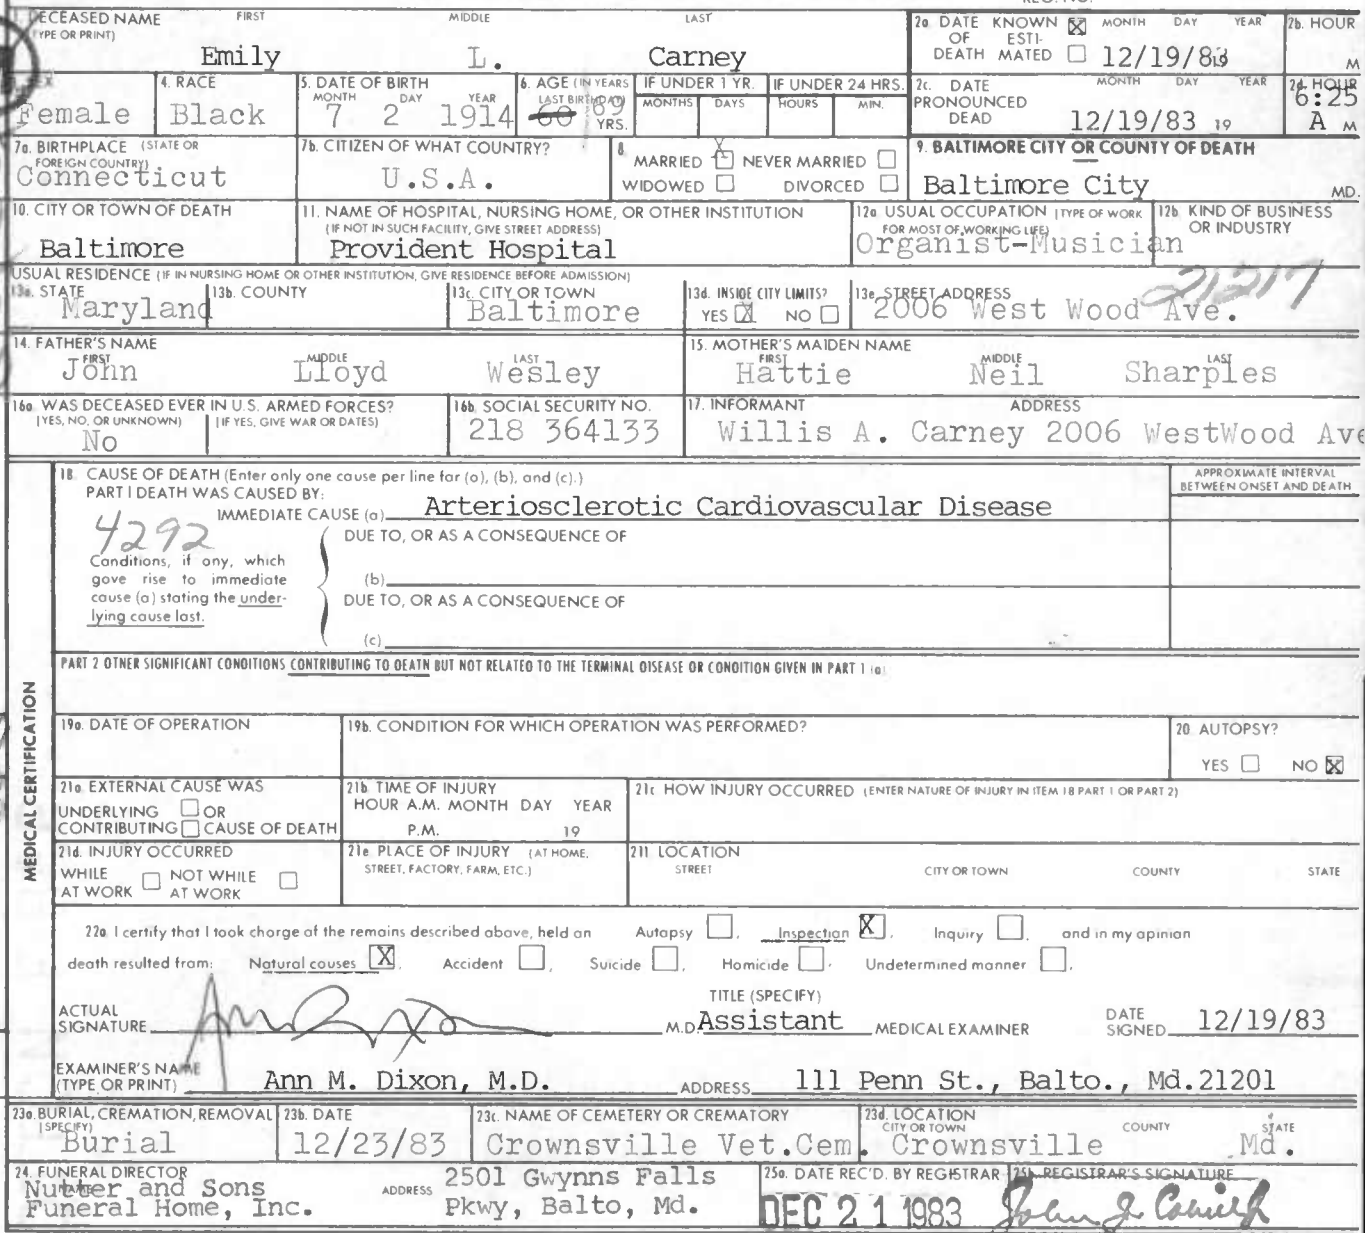 1. DECEASED NAME FIRST MIDDLE LAST
(TYPE OR PRINT)
Emily L. Carney
2a DATE KNOWN ☒ MONTH DAY YEAR
OF ESTI-
DEATH MATED ☐ 12/19/83
2b. HOUR
M
Female
4. RACE
Black
5. DATE OF BIRTH
MONTH DAY YEAR
7 2 1914
6. AGE (IN YEARS
LAST BIRTHDAY)
60 69
YRS.
IF UNDER 1 YR.
MONTHS DAYS
IF UNDER 24 HRS.
HOURS MIN.
2c. DATE MONTH DAY YEAR
PRONOUNCED
DEAD 12/19/83 19
2d. HOUR
6:25
A M
7a. BIRTHPLACE (STATE OR
FOREIGN COUNTRY)
Connecticut
7b. CITIZEN OF WHAT COUNTRY?
U.S.A.
8.
MARRIED ☒ NEVER MARRIED ☐
WIDOWED ☐ DIVORCED ☐
9. BALTIMORE CITY OR COUNTY OF DEATH
Baltimore City MD.
10. CITY OR TOWN OF DEATH
Baltimore
11. NAME OF HOSPITAL, NURSING HOME, OR OTHER INSTITUTION
(IF NOT IN SUCH FACILITY, GIVE STREET ADDRESS)
Provident Hospital
12a USUAL OCCUPATION (TYPE OF WORK
FOR MOST OF WORKING LIFE)
Organist-Musician
12b KIND OF BUSINESS
OR INDUSTRY
USUAL RESIDENCE (IF IN NURSING HOME OR OTHER INSTITUTION, GIVE RESIDENCE BEFORE ADMISSION)
13a. STATE
Maryland
13b. COUNTY
13c. CITY OR TOWN
Baltimore
13d. INSIDE CITY LIMITS?
YES ☒ NO ☐
13e. STREET ADDRESS
21217
2006 West Wood Ave.
14. FATHER'S NAME
FIRST MIDDLE LAST
John Lloyd Wesley
15. MOTHER'S MAIDEN NAME
FIRST MIDDLE LAST
Hattie Neil Sharples
16a WAS DECEASED EVER IN U.S. ARMED FORCES?
(YES, NO, OR UNKNOWN) (IF YES, GIVE WAR OR DATES)
No
16b. SOCIAL SECURITY NO.
218 364133
17. INFORMANT ADDRESS
Willis A. Carney 2006 WestWood Ave
MEDICAL CERTIFICATION
18. CAUSE OF DEATH (Enter only one cause per line for (a), (b), and (c).)
PART I DEATH WAS CAUSED BY:
IMMEDIATE CAUSE (a) Arteriosclerotic Cardiovascular Disease
APPROXIMATE INTERVAL
BETWEEN ONSET AND DEATH
4292
DUE TO, OR AS A CONSEQUENCE OF
Conditions, if any, which
gave rise to immediate
cause (a) stating the under-
lying cause last.
(b)
DUE TO, OR AS A CONSEQUENCE OF
(c)
PART 2 OTHER SIGNIFICANT CONDITIONS CONTRIBUTING TO DEATH BUT NOT RELATED TO THE TERMINAL DISEASE OR CONDITION GIVEN IN PART 1 (a)
19a. DATE OF OPERATION
19b. CONDITION FOR WHICH OPERATION WAS PERFORMED?
20 AUTOPSY?
YES ☐ NO ☒
21a. EXTERNAL CAUSE WAS
UNDERLYING ☐ OR
CONTRIBUTING ☐ CAUSE OF DEATH
21b TIME OF INJURY
HOUR A.M. MONTH DAY YEAR
P.M. 19
21c HOW INJURY OCCURRED (ENTER NATURE OF INJURY IN ITEM 18 PART 1 OR PART 2)
21d. INJURY OCCURRED
WHILE ☐ NOT WHILE ☐
AT WORK AT WORK
21e PLACE OF INJURY (AT HOME,
STREET, FACTORY, FARM, ETC.)
21f LOCATION
STREET CITY OR TOWN COUNTY STATE
22a I certify that I took charge of the remains described above, held an Autopsy ☐, Inspection ☒, Inquiry ☐, and in my opinion
death resulted from: Natural causes ☒, Accident ☐, Suicide ☐, Homicide ☐, Undetermined manner ☐,
ACTUAL
SIGNATURE
M.D.
TITLE (SPECIFY)
Assistant MEDICAL EXAMINER
DATE
SIGNED 12/19/83
EXAMINER'S NAME
(TYPE OR PRINT) Ann M. Dixon, M.D. ADDRESS 111 Penn St., Balto., Md.21201
23a. BURIAL, CREMATION, REMOVAL
(SPECIFY)
Burial
23b. DATE
12/23/83
23c. NAME OF CEMETERY OR CREMATORY
Crownsville Vet.Cem.
23d. LOCATION
CITY OR TOWN COUNTY STATE
Crownsville Md.
24. FUNERAL DIRECTOR
NAME
Nutter and Sons
Funeral Home, Inc.
ADDRESS
2501 Gwynns Falls
Pkwy, Balto, Md.
25a. DATE REC'D. BY REGISTRAR
DEC 21 1983
25b. REGISTRAR'S SIGNATURE